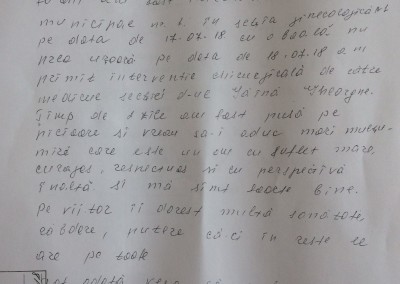 municipal nr. 1. în secția ginecologică
pe data de 17.07.18 cu o boală nu
prea ușoară pe data de 18.07.18 am
primit intervenție chirurgicală de către
medicul secției d-ul Gheorghe.
Timp de zile am fost pusă pe
picioare și vreau să-i aduc mari mulțu-
miri care este un om cu suflet mare,
curajos, respectuos și cu perspectivă
înaltă și mă simt foarte bine.
Pe viitor îi doresc multă sanatate,
rabdare, putere că-ci în rest le
are pe toate